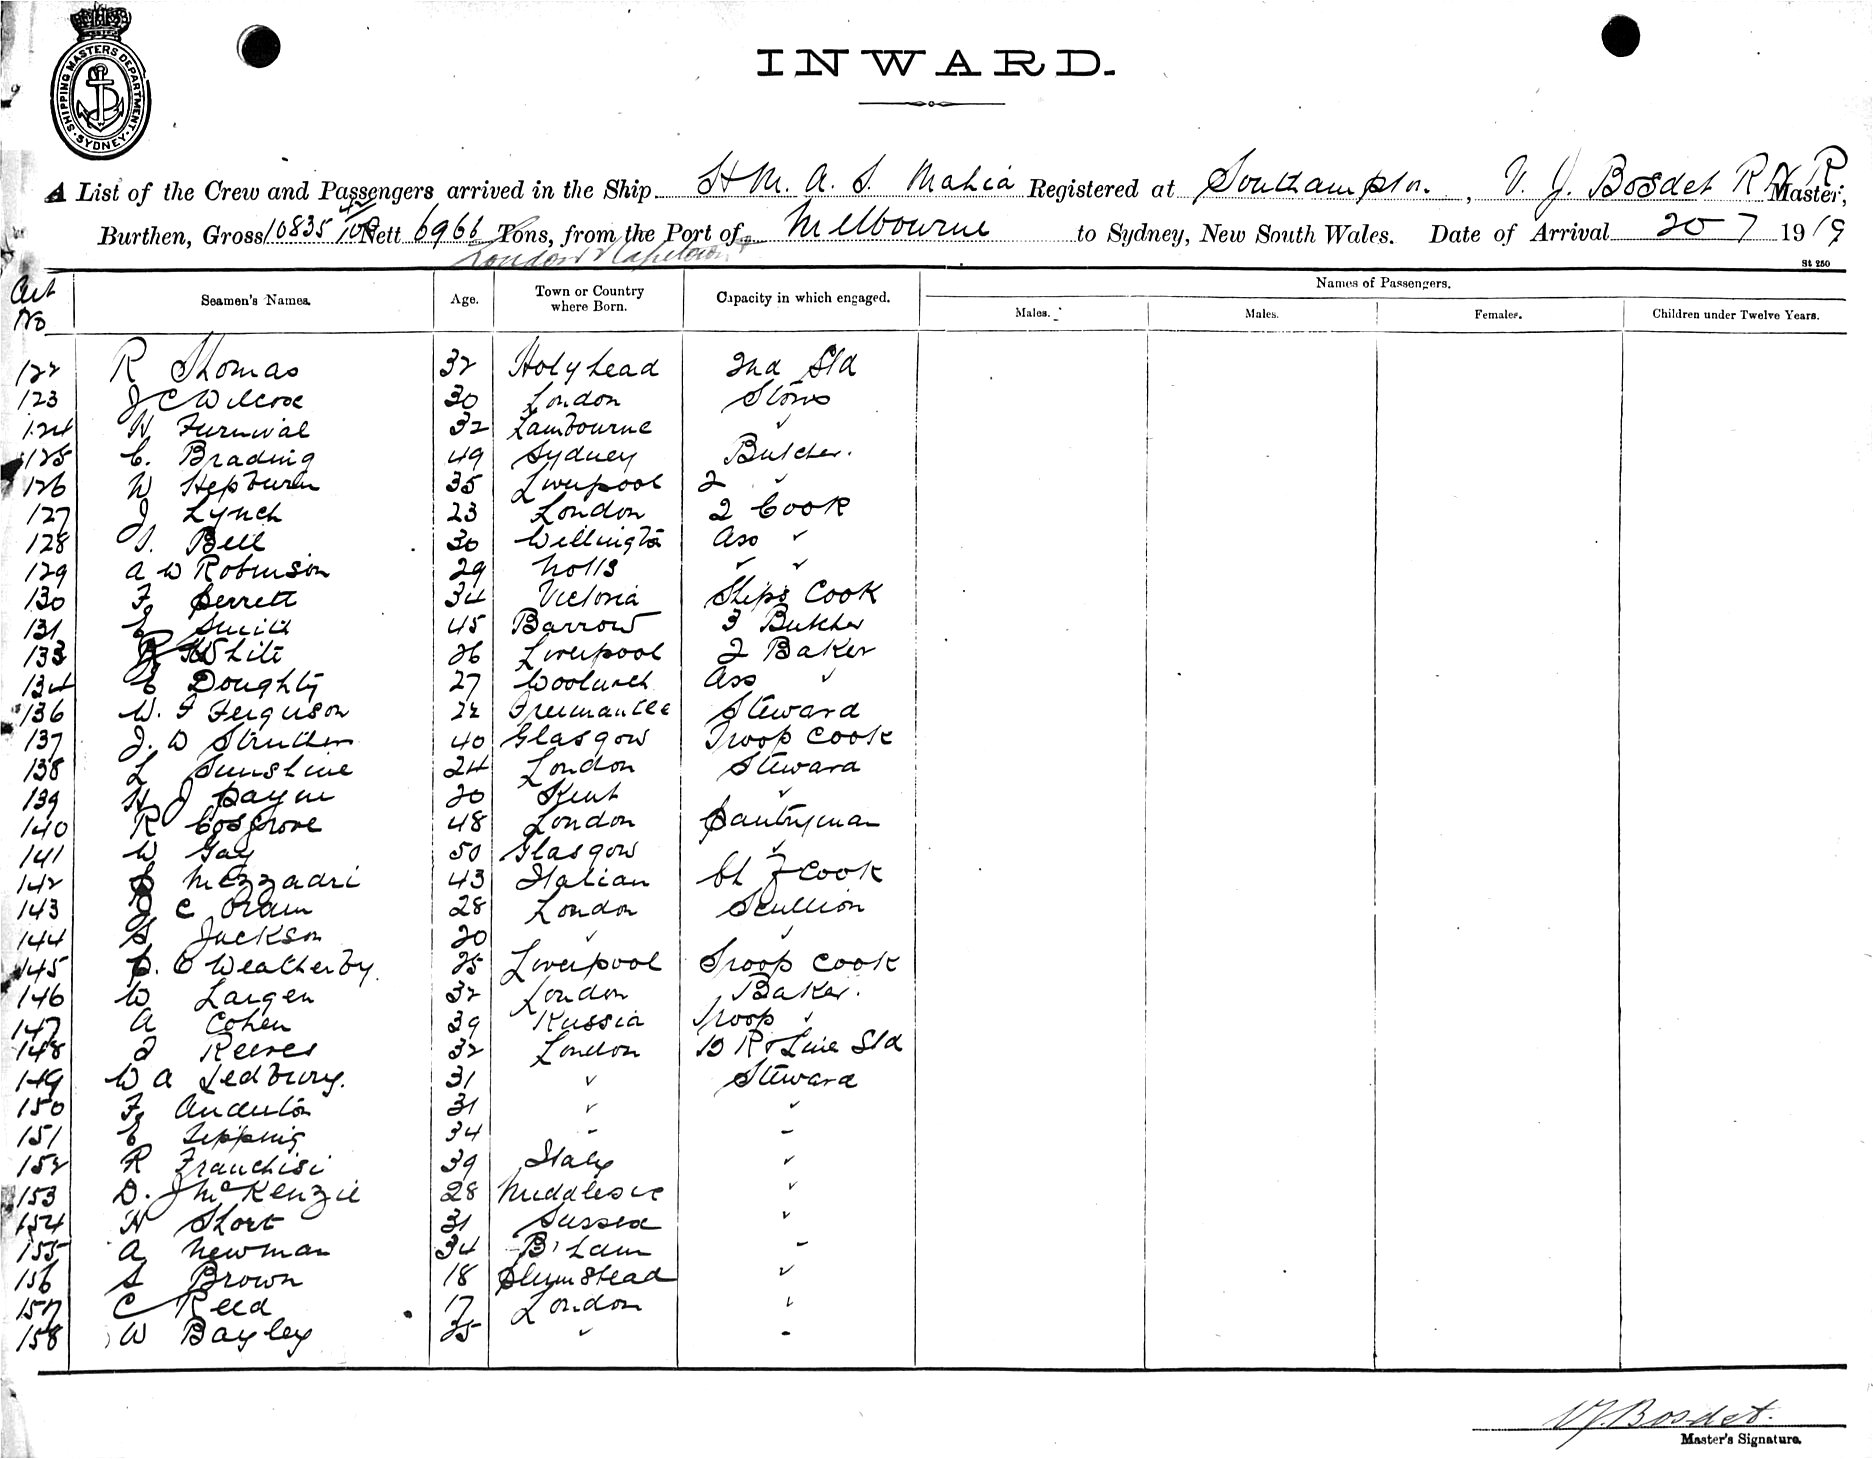 SHIPPING MASTERS DEPARTMENT
SYDNEY
INWARD.
A List of the Crew and Passengers arrived in the Ship H M. A. S. Mahia Registered at Southampton. , V. J. Bosdet R N R Master,
Burthen, Gross 10835 Nett 6966 Tons, from the Port of Melbourne to Sydney, New South Wales. Date of Arrival 20 7 1919
London & Capetown
St 250
Art No Seamen's Names. Age. Town or Country where Born. Capacity in which engaged. Names of Passengers.
Males. Males. Females. Children under Twelve Years.
122 R Thomas 32 Holyhead 2nd Std
123 J C Wilcox 30 London Stores
124 H Furnival 32 Lambourne "
125 C. Brading 49 Sydney Butcher.
126 W Hepburn 35 Liverpool 2 "
127 J Lynch 23 London 2 Cook
128 Bell 30 Willington Ass "
129 A W Robinson 29 Notts " "
130 F Perrett 34 Victoria Ships Cook
131 E Smith 45 Barrow 3 Butcher
133 White 26 Liverpool 2 Baker
134 E Doughty 27 Woolwich Ass "
136 W. F Ferguson 22 Freemantle Steward
137 J. W Struthers 40 Glasgow Troop Cook
138 L Sunshine 24 London Steward
139 H J Payne 20 Kent "
140 R Cosgrove 48 London Pantryman
141 W Gay 50 Glasgow "
142 Mezzadri 43 Italian Ch F Cook
143 C Oram 28 London Scullion
144 S Jackson 20 " "
145 C Weatherby 25 Liverpool Troop Cook
146 W Largen 32 London Baker.
147 A Cohen 39 Russia Troop "
148 J Reeves 32 London B R & Line Std
149 W A Tedbury. 31 " Steward
150 F Anderton 31 " "
151 E Tipping 34 " "
152 R Franchisi 39 Italy "
153 D. J McKenzie 28 Middlesex "
154 H Short 31 Sussex "
155 A Newman 34 B'ham "
156 S Brown 18 Plumstead "
157 C Reed 17 London "
158 W Bayley 35 " "
V J. Bosdet.
Master's Signature.